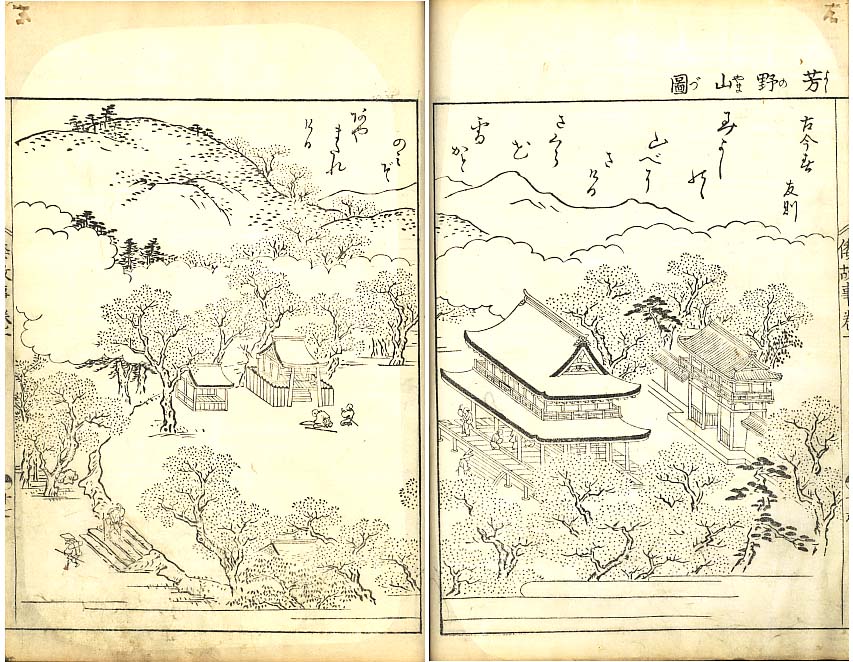 芳野山圖
よしのやまづ
古今春
友則
みよし
のゝ
山べに
さける
さくら
雪かと
のみそ
あや
またれ
ける